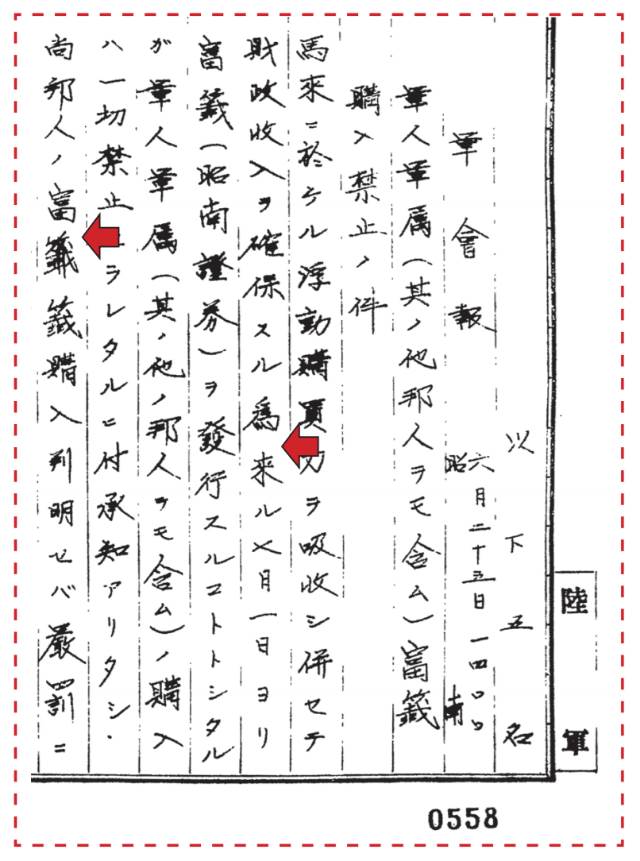 以下五名
軍會報 六月二十五日一四〇〇 昭南
軍人軍属(其ノ他邦人ヲモ含ム)富籤
購入禁止ノ件
馬來ニ於ケル浮動購買力ヲ吸收シ併セテ
財政收入ヲ確保スル爲來ル七月一日ヨリ
富籤(昭南證券)ヲ發行スルコトトシタル
ガ軍人軍属(其ノ他ノ邦人ヲモ含ム)ノ購入
ハ一切禁止セラレタルニ付承知アリタシ.
尚邦人ノ富籤籤購入判明セバ嚴罰ニ
陸軍
0558